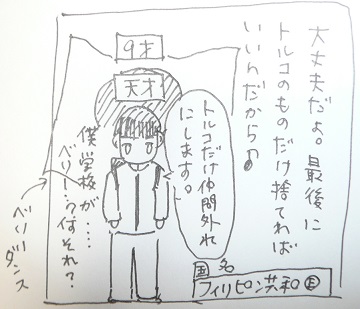 大丈夫だよ。最後に
トルコのものだけ捨てれば
いいんだから♪
9才
天才
トルコだけ仲間外れ
にします。
僕学校が……
べりー…?何それ?
べりーダンス
国名
フィリピン共和国